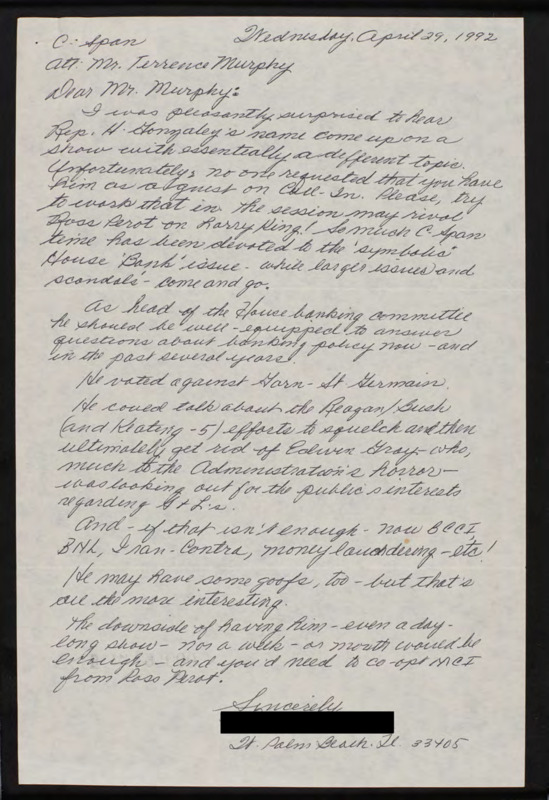 Wednesday, April 29, 1992
C-Span
Att: Mr. Terrence Murphy
Dear Mr. Murphy:
I was pleasantly surprised to hear
Rep. H. Gonzalez's name come up on a
show with essentially a different topic.
Unfortunately, no one requested that you have
him as a guest on Call-In. Please, try
to work that in. The session may rival
Ross Perot on Larry King! So much C-Span
time has been devoted to the 'symbolic'
House 'Bank' issue - while larger issues and
scandals - come and go.
As head of the House banking committee
he should be well-equipped to answer
questions about banking policy now - and
in the past several years.
He voted against Garn-St Germain.
He could talk about the Reagan/Bush
(and Keating-5) efforts to squelch and then
ultimately get rid of Edwin Gray - who,
much to the Administration's horror -
was looking out for the public's interests
regarding S+L's.
And - if that isn't enough - now BCCI,
BNL, Iran-Contra, money laundering - etc!
He may have some goofs, too - but that's
all the more interesting.
The downside of having him - even a day-
long show - nor a week - or month would be
enough - and you'd need to co-opt MCI
from Ross Perot.
Sincerely
W. Palm Beach, Fl. 33405